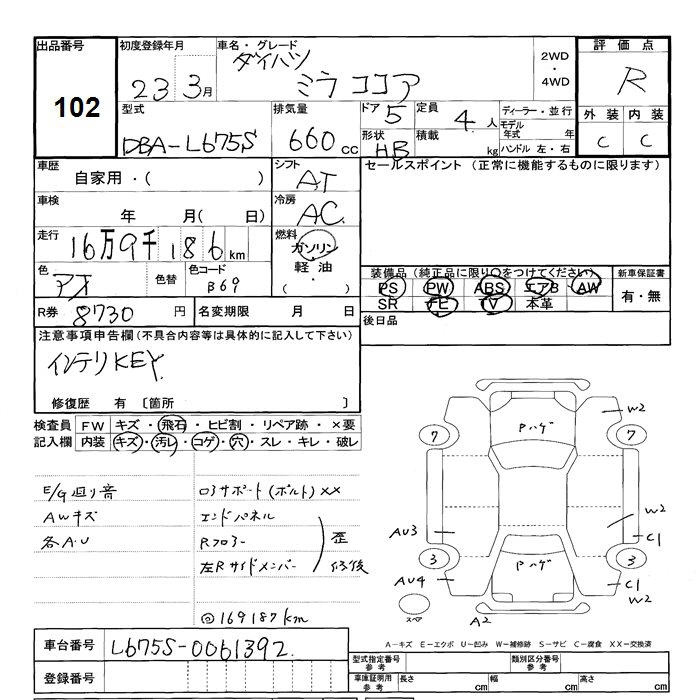 出品番号 初度登録年月 車名・グレード 評価点
102 23 3月 ダイハツ ミラ ココア 2WD・4WD R
型式 排気量 ドア 5 定員 4人 ディーラー・並行 外装 内装
DBA-L675S 660cc 形状 HB 積載 kg モデル年式 年 C C
ハンドル 左・右
車歴 シフト セールスポイント (正常に機能するものに限ります)
自家用・( ) AT
車検 冷房
年 月( 日) AC
走行 燃料
16万9千186km ガソリン・軽油・( )
色 色替 色コード 装備品(純正品に限り○をつけてください) 新車保証書
アオ B69 PS PW ABS エアB AW 有・無
SR FE V 本革
R券 8730円 名変期限 月 日 後日品
注意事項申告欄(不具合内容等は具体的に記入して下さい)
インテリKEY
修復歴 有 〔箇所 〕
検査員 FW キズ・飛石・ヒビ割・リペア跡・×要
記入欄 内装 キズ・汚レ・コゲ・穴・スレ・キレ・破レ
E/G廻り音 ロアサポート(ボルト)××
AWキズ エンドパネル
各A.U Rフロアー 歪
左Rサイドメンバー 修後
@169187km
Pハゲ
W2
7 7
W2
AU3 C1
3 Pハゲ 3
AU4 C1
W2
スペア A2
A-キズ E-エクボ U-凹み W-補修跡 S-サビ C-腐食 XX-交換済
車台番号 L675S-0061392
登録番号
型式指定番号 参考 類別区分番号 参考
車庫証明用 参考 長さ cm 幅 cm 高さ cm